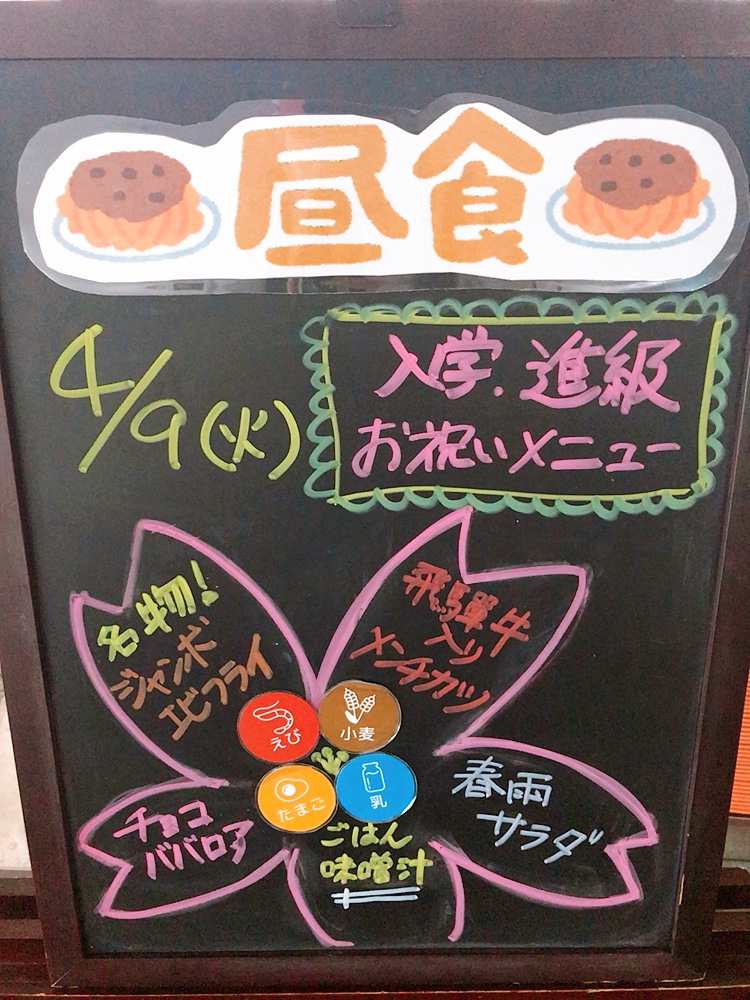 昼食
4/9(火)
入学.進級
お祝いメニュー
名物!
ジャンボ
エビフライ
飛騨牛
入り
メンチカツ
えび
小麦
たまご
乳
チョコ
ババロア
ごはん
味噌汁
春雨
サラダ